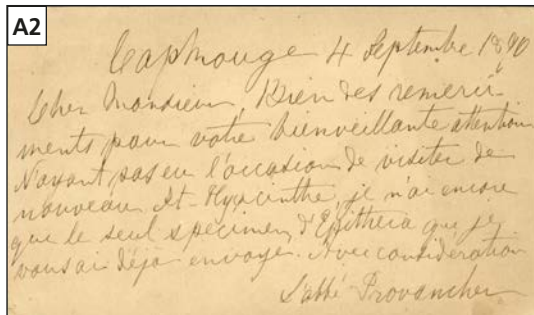 A2
CapRouge 4 Septembre 1890
Cher Monsieur, Bien des remerci-
ments pour votre bienveillante attention
N'ayant pas eu l'occasion de visiter de
nouveau St-Hyacinthe, je n'ai encore
que le seul spécimen d'Epitheca que je
vous ai déjà envoyé. Avec considération
L'abbé Provancher